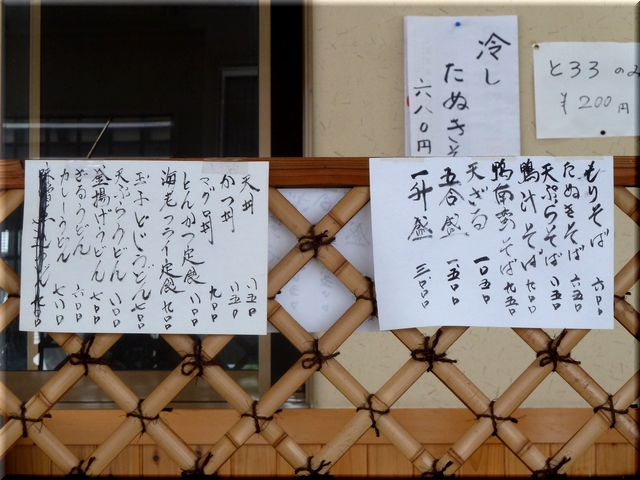 冷し
たぬきそ
六八〇円
とろろのみ
¥200円
もりそば 六〇〇
たぬきそば 六五〇
天ぷらそば 一一五〇
鴨汁そば 九〇〇
鴨南蛮そば 九五〇
天ざる 一〇五〇
五合盛 一五〇〇
一升盛 三〇〇〇
天丼 一一五〇
かつ丼 一一五〇
マグロ丼 九〇〇
とんかつ定食 一一〇〇
海老フライ定食 九〇〇
玉子とじうどん 七〇〇
天ぷらうどん 一一〇〇
釜揚げうどん 七〇〇
ざるうどん 六〇〇
カレーうどん 七八〇